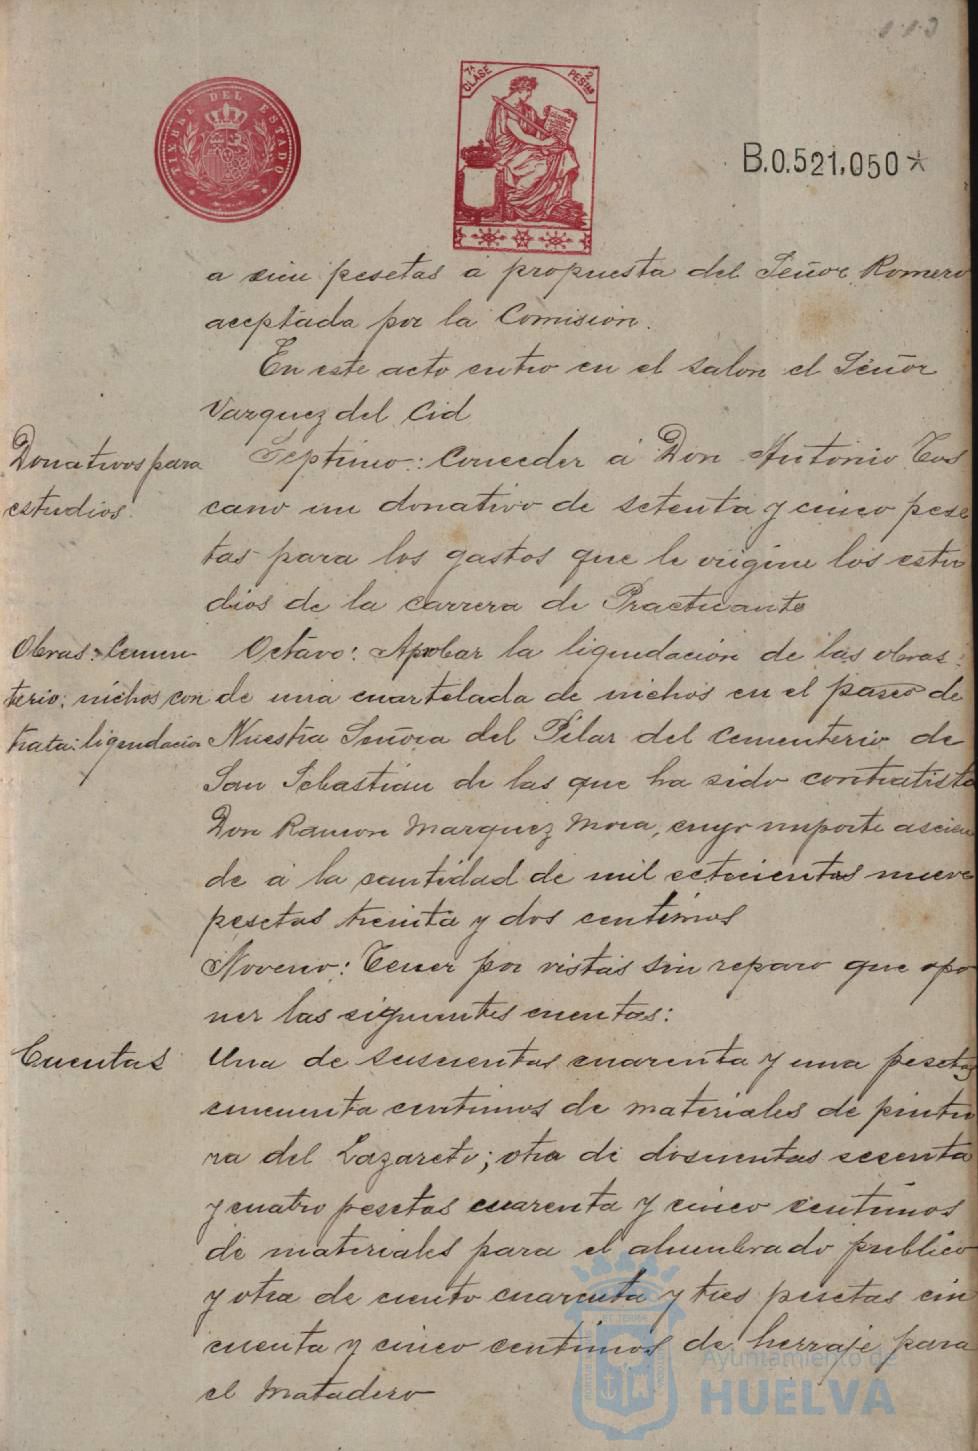 113
TIMBRE DEL ESTADO
7ª CLASE
2 PESTAS
B.0.521.050*
a cien pesetas á propuesta del Señor Romero
aceptada por la Comision.
En este acto entro en el salon el Señor
Vazquez del Cid
Donativos para
estudios.
Septimo: Conceder á Don Antonio Tos
cano un donativo de setenta y cinco pese
tas para los gastos que le origine los estu
dios de la carrera de Practicante
Obras: Cemen
terio; nichos con
trata: liquidacion
Octavo: Aprobar la liquidación de las obras
de una cuartelada de nichos en el paseo de
Nuestra Señora del Pilar del Cementerio de
San Sebastián de las que ha sido contratista
Don Ramon Marquez Mora, cuyo importe ascien
de á la cantidad de mil setecientas nueve
pesetas treinta y dos centimos
Noveno: Tener por vistas sin reparo que opo
ner las siguientes cuentas:
Cuentas
Una de cuarenta y una pesetas
cincuenta centimos de materiales de pintu
ra del Lazareto; otra de doscientas sesenta
y cuatro pesetas cuarenta y cinco centimos
de materiales para el alumbrado publico
y otra de ciento cuarenta y tres pesetas cin
cuenta y cinco centimos de herraje para
el Matadero
Ayuntamiento de
HUELVA